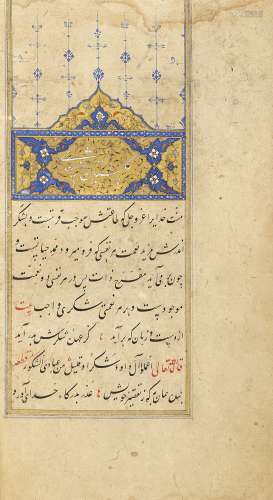 منت خدایرا عز و جل که طاعتش موجب قربتست و بشکر
اندرش مزید نعمت هر نفسی که فرو میرود ممد حیاتست و
چون بر می آید مفرح ذات پس در هر نفسی دو نعمت
موجودست و بر هر نعمتی شکری واجب بیت
از دست و زبان که برآید کز عهده شکرش بدر آید
قال الله تعالی اعملوا آل داود شکرا و قلیل من عبادی الشکور قطعه
بنده همان به که ز تقصیر خویش عذر بدرگاه خدای آورد